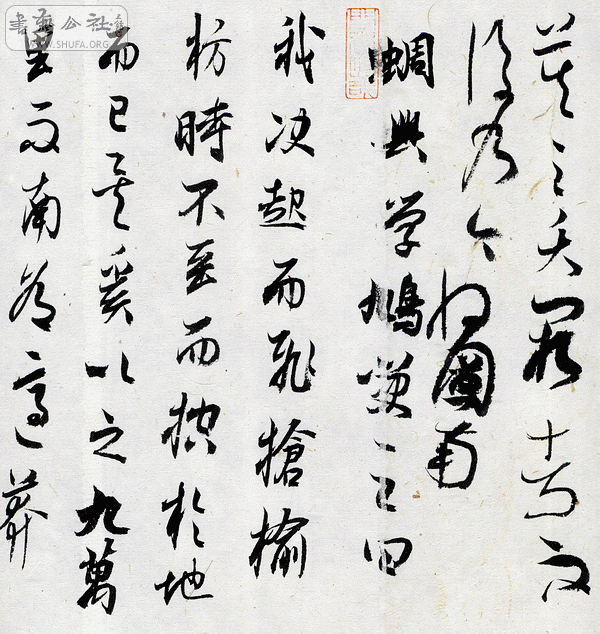 莫之夭閼者而
後乃今将圖南
蜩與学鳩笑之曰
我决起而飛搶榆
枋時不至而控於地
而已矣奚以之九萬
里而南為適莽
WWW.SHUFA.ORG